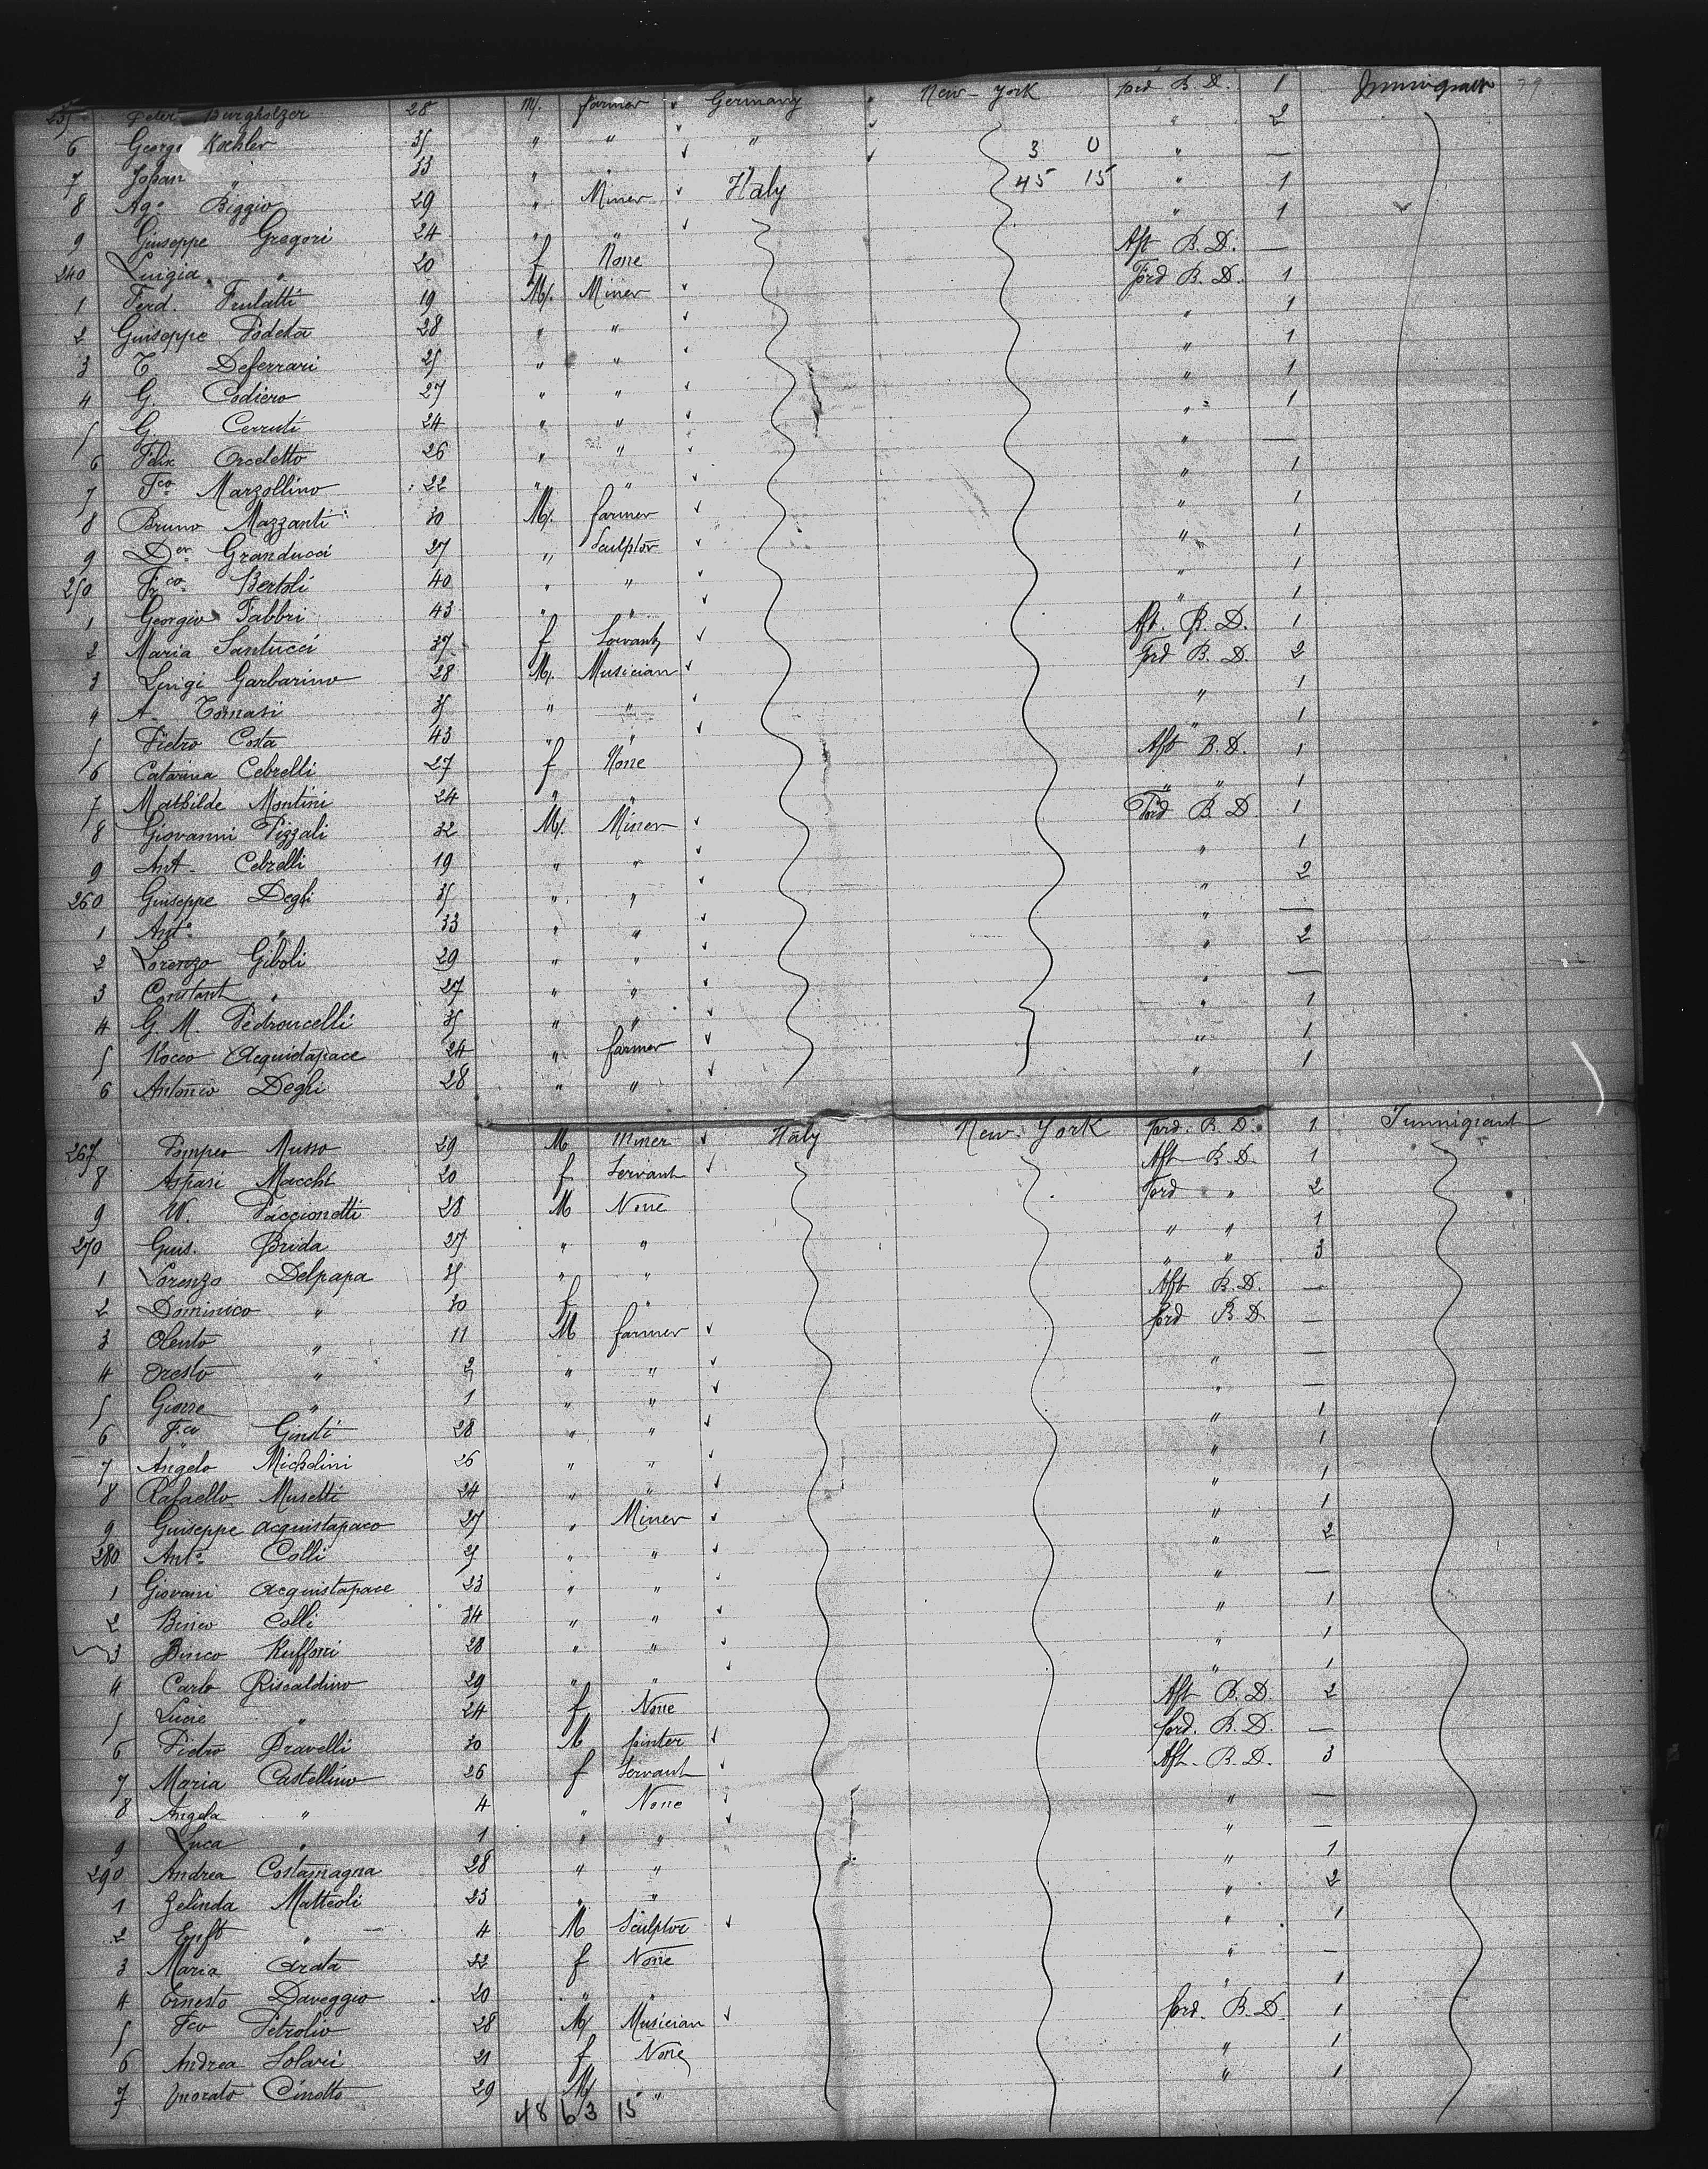 235 Peter Burgholzer 28 M. farmer Germany New-York ford B.D. 1 Immigrant 79
6 George Koehler 35 " " " " 2
7 Johan " 33 " " " 3 0 " —
8 Ago Biggio 29 " Miner Italy 45 15 " 1
9 Giuseppe Gregori 24 " " " 1
240 Luigia " 20 f None Aft B.D. —
1 Ferd. Frulatti 19 M. Miner Ford B.D. 1
2 Guiseppe Podeta 28 " " " 1
3 T. Deferrari 25 " " " 1
4 G. Codiero 27 " " " 1
5 G. Cerruti 24 " " " 1
6 Felix Orcdetto 26 " " " —
7 Fco Marzollino 22 " " " 1
8 Bruno Mazzanti 30 M. farmer " 1
9 Der Granducci 27 " Sculptor " 1
250 Frco Bertoli 40 " " " 1
1 Georgio Fabbri 43 " " " 1
2 Maria Santucci 37 f Servant Aft. B.D. 1
3 Luigi Garbarino 28 M. Musician Ford B.D. 2
4 A. Tomasi 35 " " " 1
5 Pietro Costa 43 " " " 1
6 Catarina Cebrelli 27 f None Aft B.D. 1
7 Mathilde Montini 24 " " " " 1
8 Giovanni Pizzali 32 M. Miner Ford B D 1
9 Ant. Cebrelli 19 " " " 1
260 Guiseppe Deghi 35 " " " 2
1 Anto " 33 " " " —
2 Lorenzo Giboli 29 " " " 2
3 Constant " 27 " " " —
4 G. M. Pedroncelli 35 " " " 1
5 Rocco Acquistapace 24 " farmer " 1
6 Antonio Deghi 28 " " " 1
267 Pompeo Musso 29 M Miner Italy New-York Ford. B.D. 1 Immigrant
8 Aspasi Macchi 20 f Servant Aft B.D. 1
9 W. Paccionetti 28 M None Ford " 2
270 Gius. Brida 27 " " " " 1
1 Lorenzo Delpapa 35 " " " " 3
2 Dominico " 30 f " Aft B.D. —
3 Olento " 11 M farmer ford B.D. —
4 Oresto " 2 " " " —
5 Giorre " 1 " " " —
6 Fco Giusti 28 " " " 1
7 Angelo Michelini 26 " " " 1
8 Rafaello Musetti 24 " " " 1
9 Guiseppe Acquistapaco 27 " Miner " 1
280 Anto Colli 25 " " " 2
1 Giovani Acquistapace 23 " " " —
2 Brico Colli 34 " " " 1
3 Binco Ruffoni 28 " " " 1
4 Carlo Riscaldino 29 " " " 1
5 Lucre " 24 f None Aft B.D. 2
6 Pietro Bravelli 30 M painter ford. B.D —
7 Maria Castellino 26 f Servant Aft. B.D. 3
8 Angela " 4 " None " —
9 Luca " 1 " " " —
290 Andrea Costamagna 28 " " " 1
1 Zelinda Matteoli 23 " " " 2
2 " 4 M Sculptor " 1
3 Maria Arata 22 f None " —
4 Ernesto Daveggio 20 " " " 1
5 Fco Petrolio 28 M Musician ford. B.D. 1
6 Andrea Solari 21 f None " 1
7 Onorato Cinotto 29 M " " 1
48 63 15